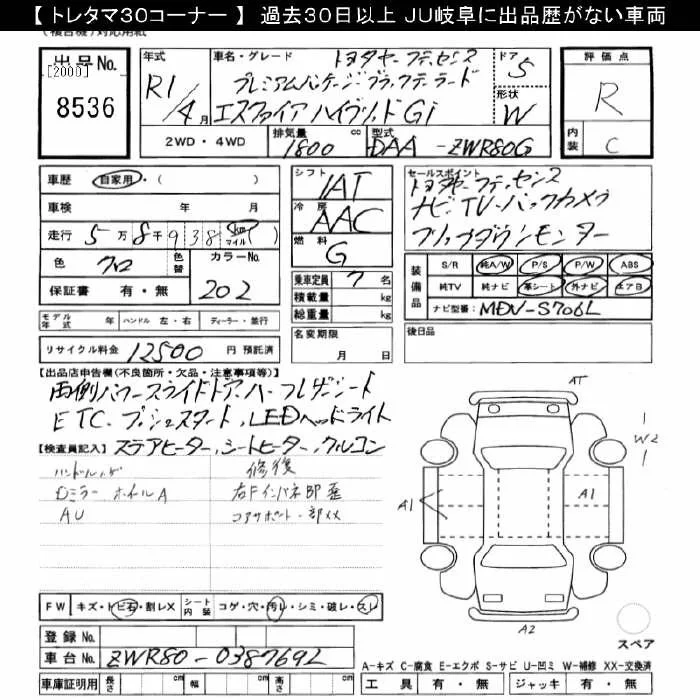 【トレタマ30コーナー】 過去30日以上 JU岐阜に出品歴がない車両
出品No.
[2000]
8536
年式
R1/4月
車名・グレード
トヨタヤーフティセンス
プレミアムパッケージブラックテーラード
エスクァイア ハイブリッドGi
ドア
5
形状
W
評価点
R
内装
C
2WD・4WD
排気量
1800 cc
型式
DAA-ZWR80G
車歴 自家用・( )
車検 年 月
走行 5万8千938 km マイル
色 クロ
色替
カラーNo.
202
保証書 有・無
モデル年式 年 ハンドル 左・右 ディーラー・並行
リサイクル料金 12500 円 預託済
シフト
IAT
冷房
AAC
燃料
G
乗車定員 7 名
積載量 kg
総重量 kg
名変期限
月 日
セールスポイント
トヨタヤーフティセンス
ナビ・TV・バックカメラ
フリップダウンモニター
装備品
S/R 純A/W P/S P/W ABS
純TV 純ナビ 革シート 外ナビ エアB
ナビ型番 MDV-S706L
後日品
【出品店申告欄(不良箇所・欠品・注意事項等)】
両側パワースライドドア、ハーフレザーシート
ETC・プッシュスタート、LEDヘッドライト
【検査員記入】 ステアヒーター、シートヒーター、クルコン
ハンドルスレ 修復
Dミラー ホイルA 右Fインパネ部歪
AU コアサポート一部XX
AT
W2
A1
A1
A2
スペア
FW キズ・トビ石・割レX
シート内装 コゲ・穴・汚レ・シミ・破レ・スレ
登録No.
車台No. ZWR80-0387692
車庫証明用 長さ cm 幅 cm 高さ cm
A-キズ C-腐食 E-エクボ S-サビ U-凹ミ W-補修 XX-交換済
工具 有・無 ジャッキ 有・無